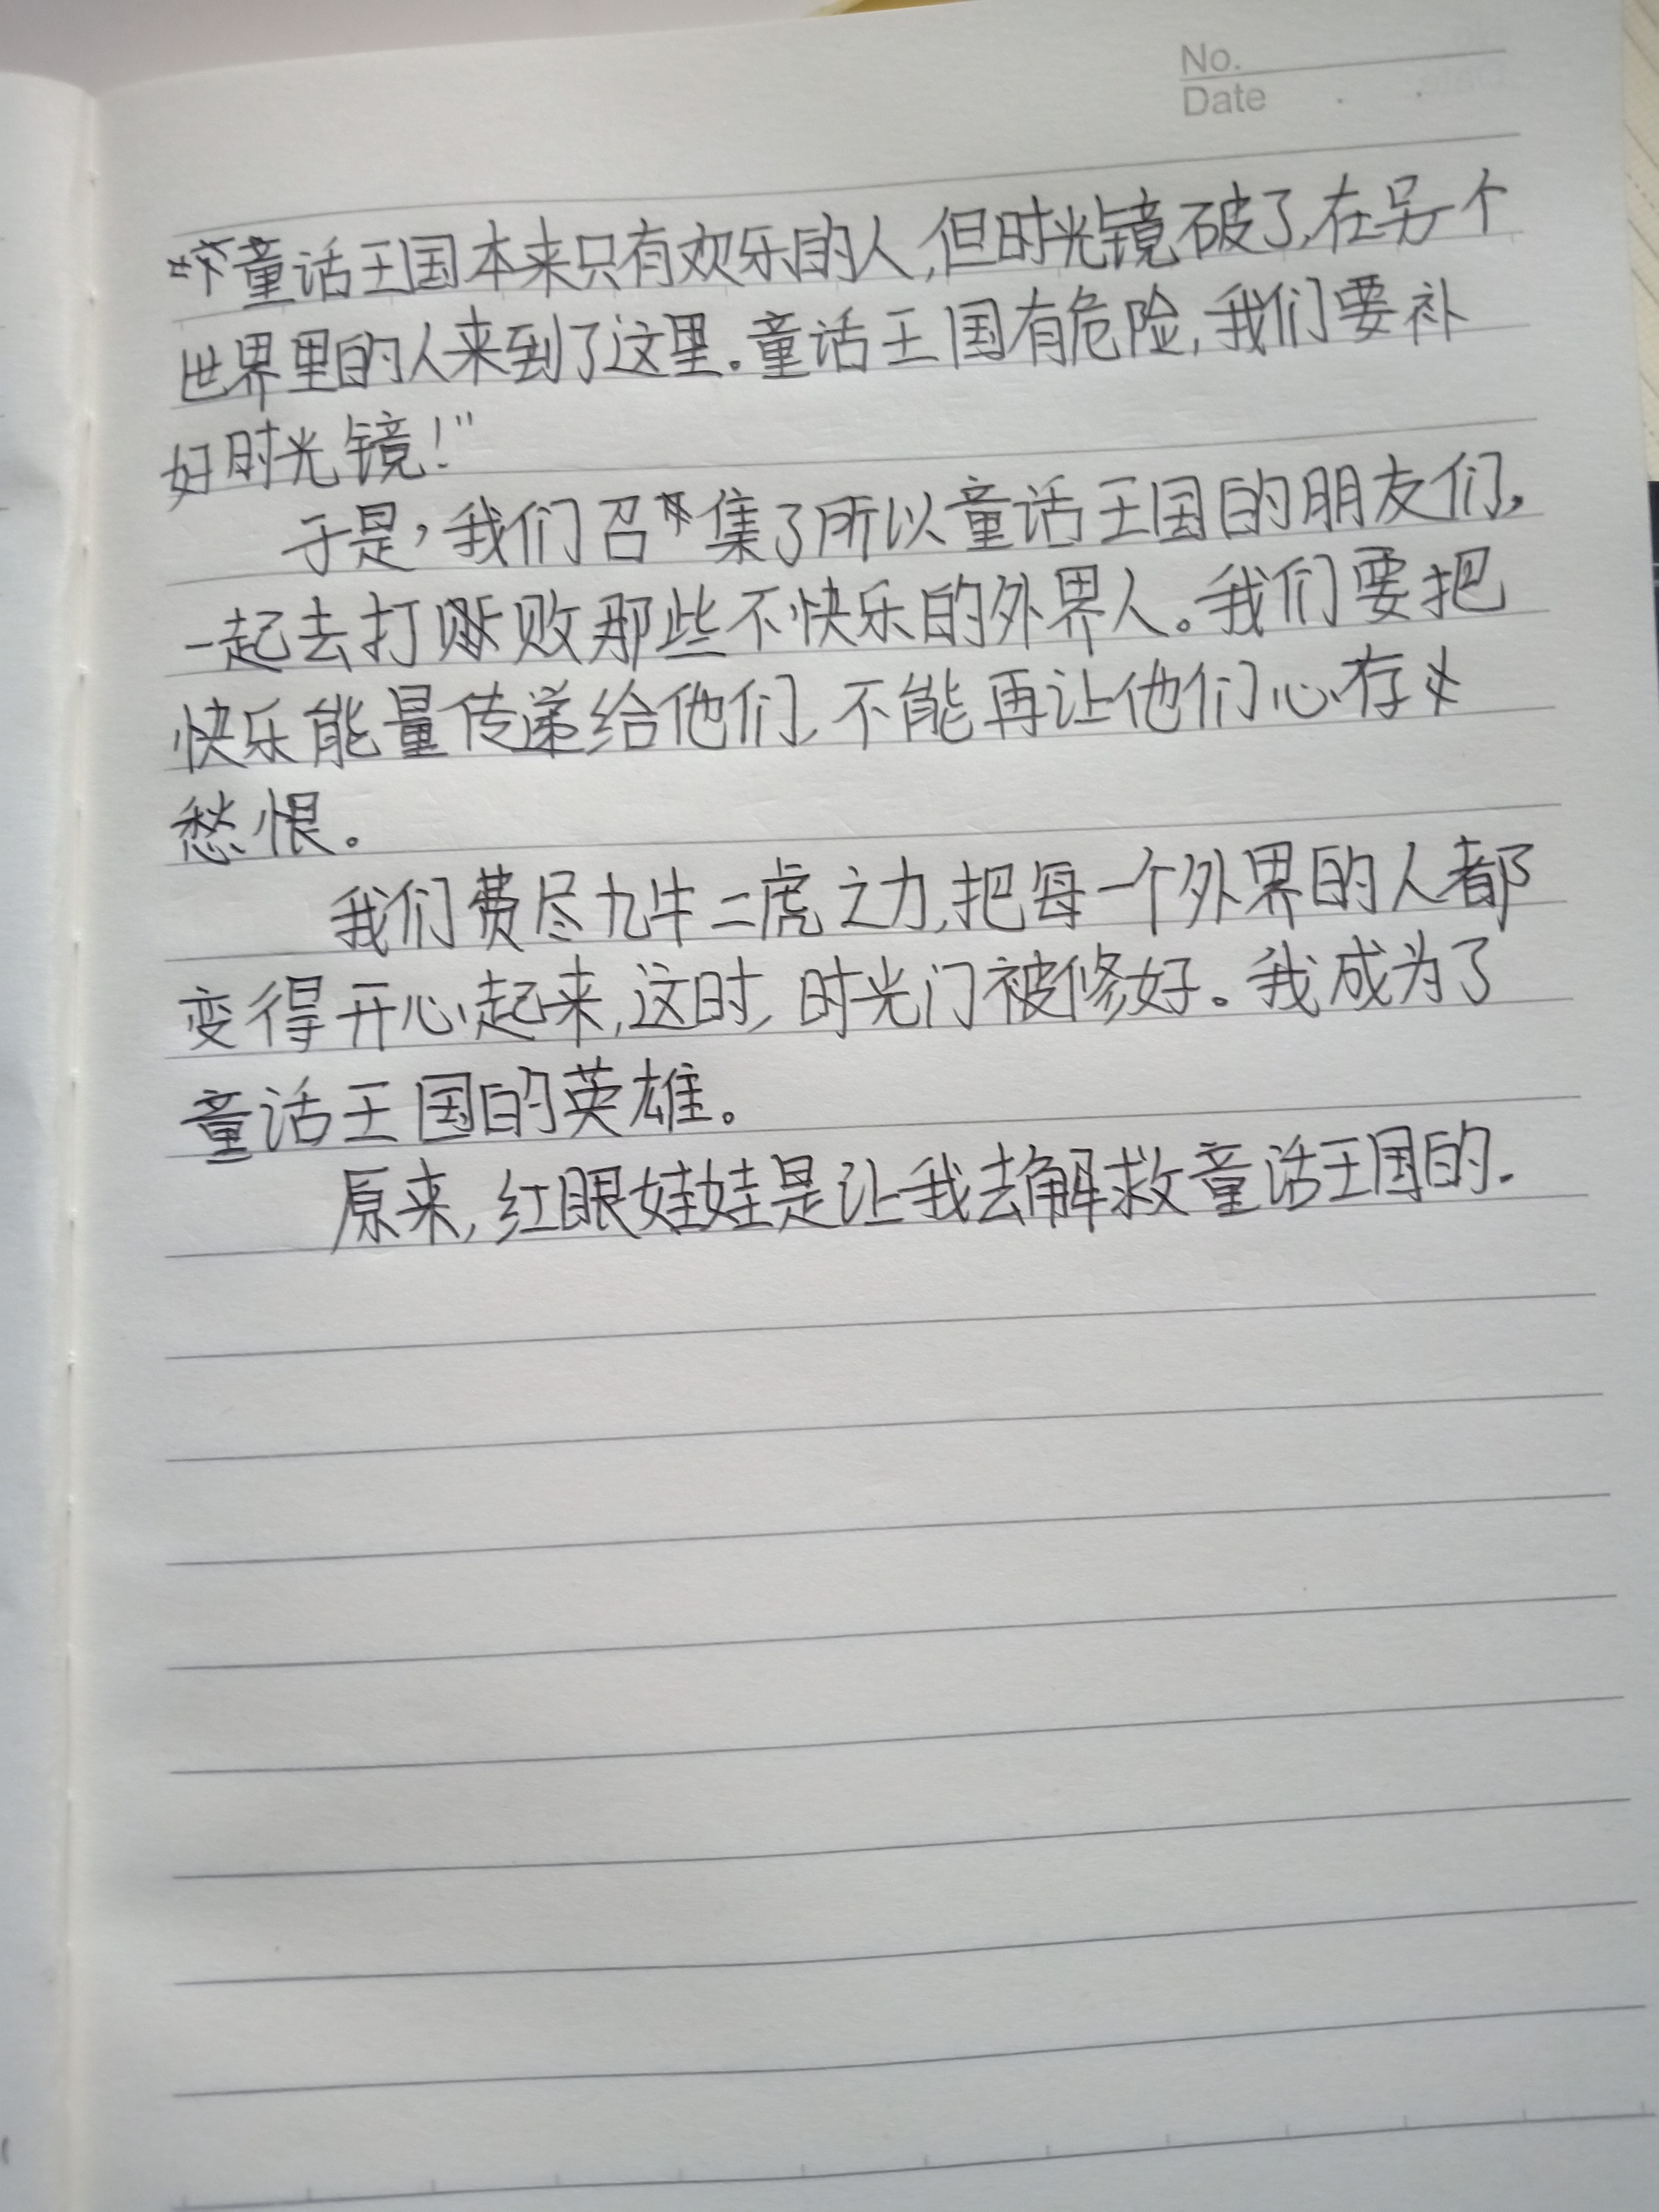 No.
Date
“童话王国本来只有欢乐的人,但时光镜破了,在另个
世界里的人来到了这里.童话王国有危险,我们要补
好时光镜!”
于是,我们召集了所以童话王国的朋友们,
一起去打败那些不快乐的外界人。我们要把
快乐能量传递给他们,不能再让他们心存
愁恨。
我们费尽九牛二虎之力,把每一个外界的人都
变得开心起来,这时,时光门被修好。我成为了
童话王国的英雄。
原来,红眼娃娃是让我去解救童话王国的.